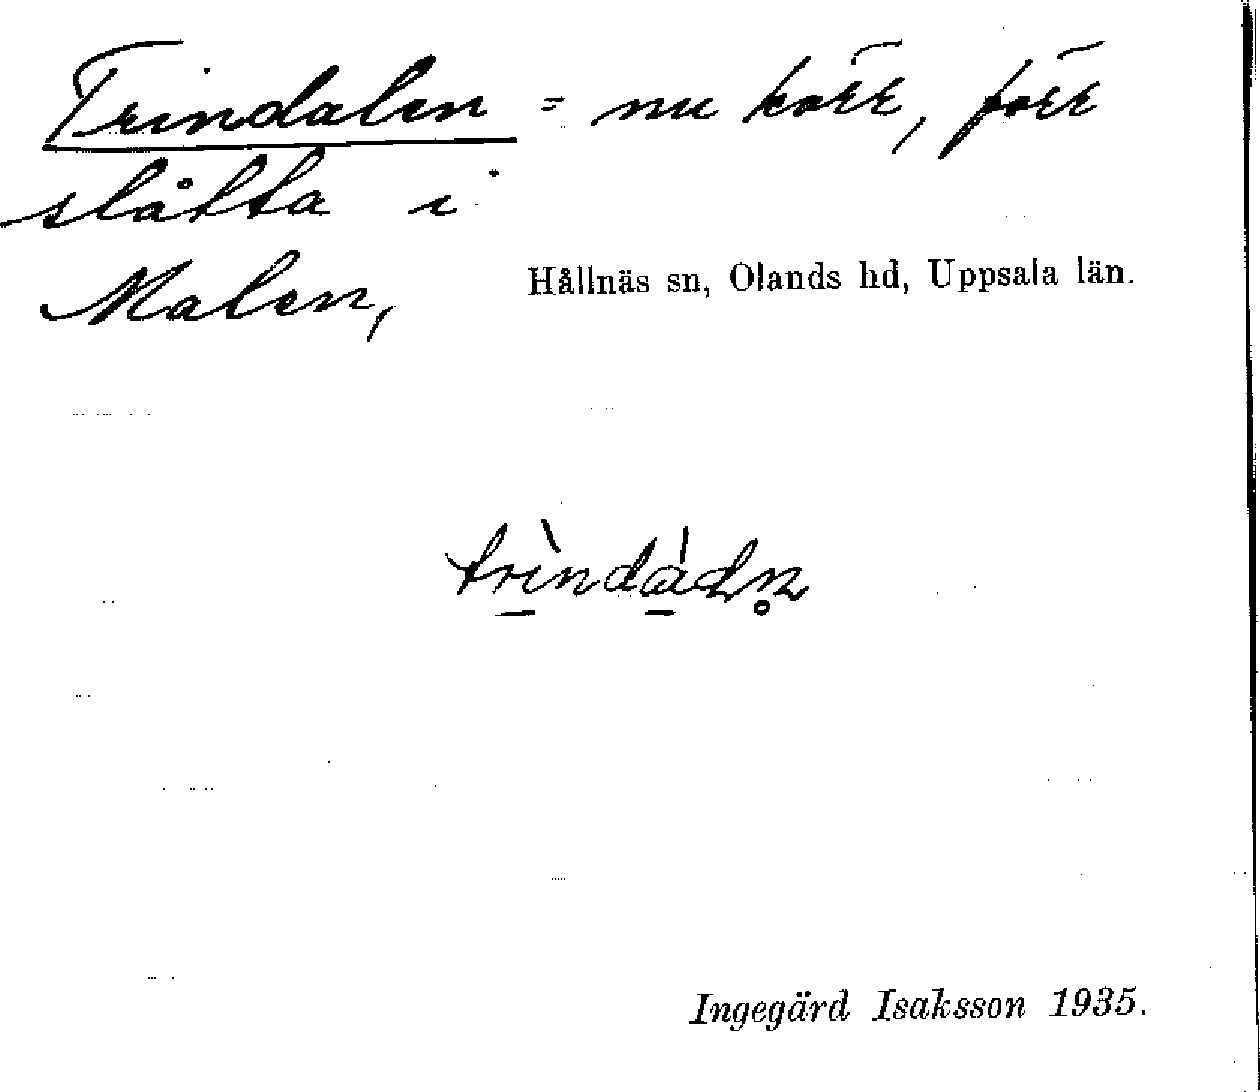 Trindalen = nu kärr, förr
slåtta i
Malen,
Hållnäs sn, Olands hd, Uppsala län.
trìndàdn̥
Ingegärd Isaksson 1935.